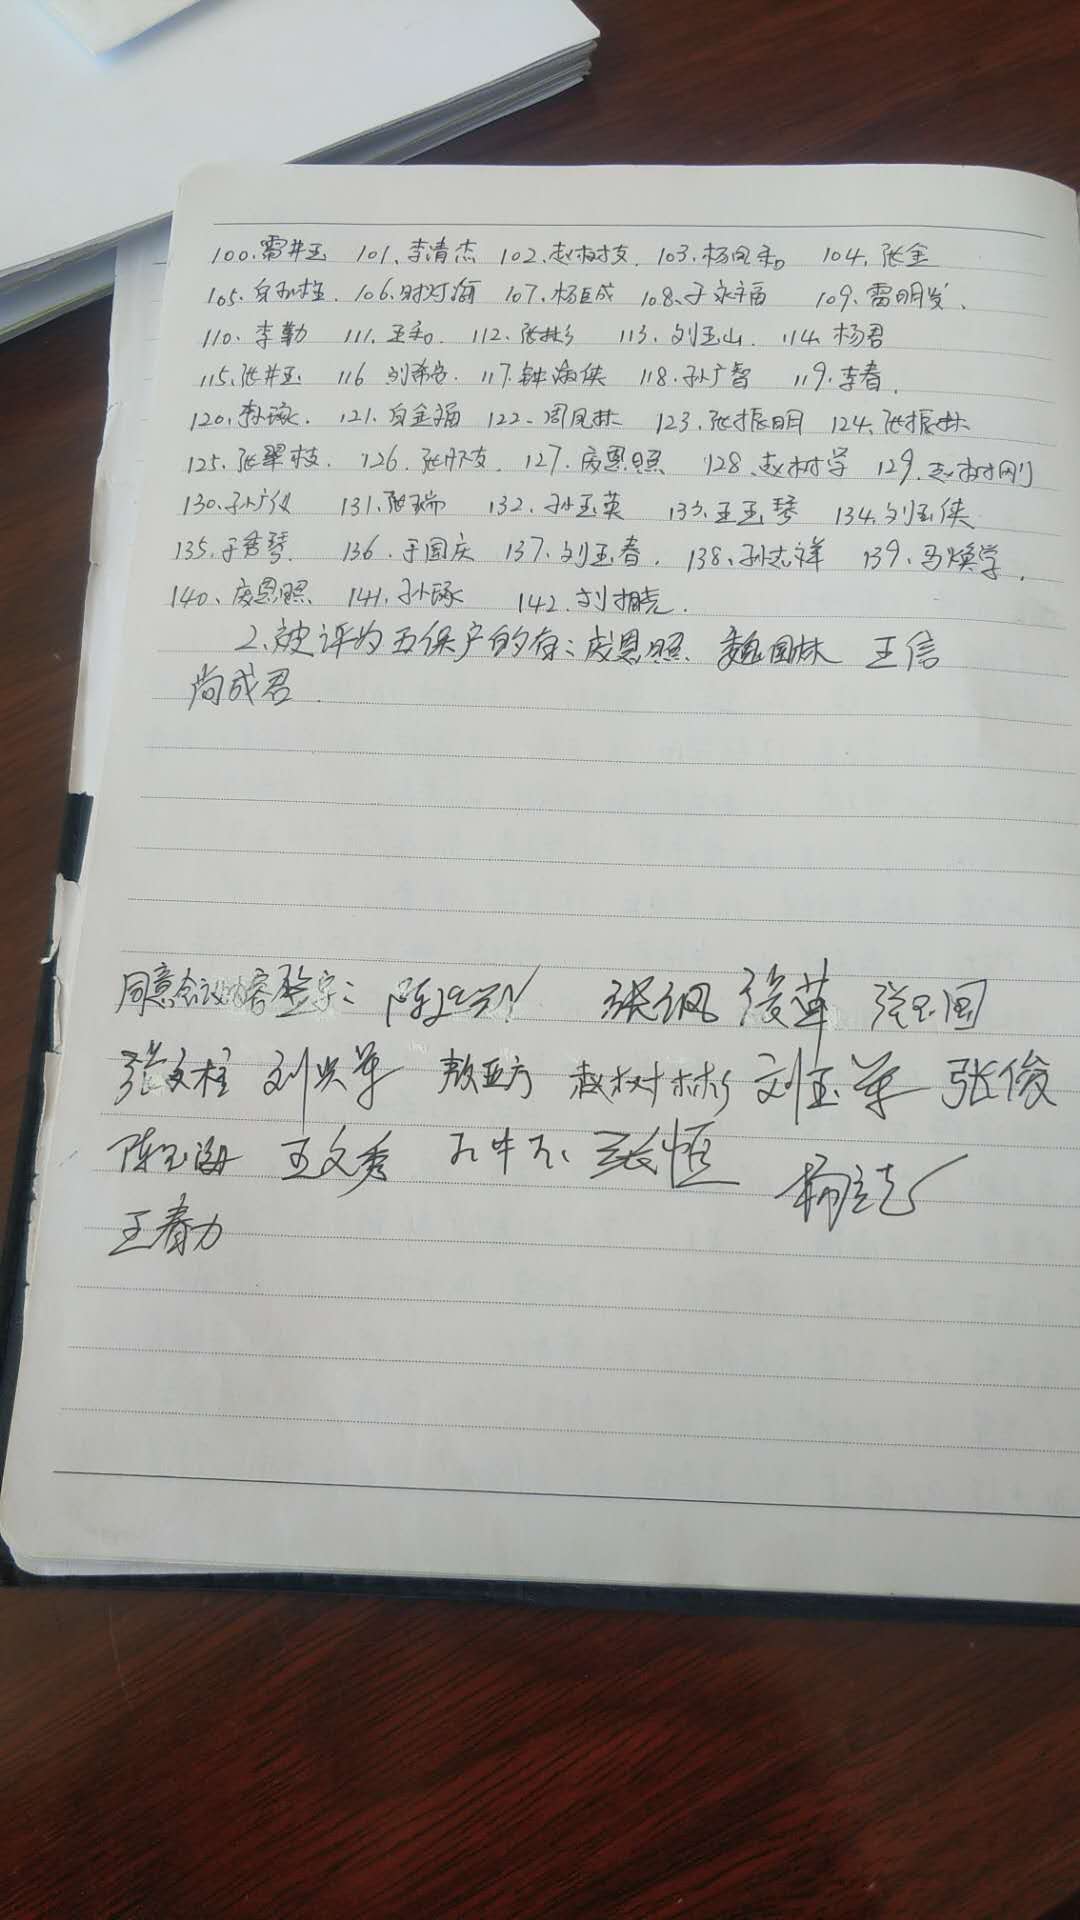 100.雷井玉 101.李清杰 102.赵树枝. 103.杨凤和 104.张金
105. 107.杨巨成 108.于永福 109.雷明发.
110.李勤 111.王和. 112.张彬 113.刘玉山. 114.杨君
115.张井玉 116 117.钟淑侠 118.孙广智 119.李春.
120.孙琢. 121.白金福 122.周凤林 123.张振明 124.张振林
125.张翠枝. 126. 127.庞恩照 128.赵树学 129.赵树刚
130.孙广仪 131.张瑞 132.孙玉英 133.王玉琴 134.刘玉侠
135.于秀琴. 136.于国庆 137.刘玉春. 138.孙志祥 139.马焕学.
140.庞恩照 141.孙琢 142.刘相尧.
2.被评为五保户的有:庞恩照. 魏国林 王信
尚成君.
同意会议内容签字: 张俊革 张玉国
张文柱 刘兴军 敖亚方 赵树彬 刘玉军 张俊
陈玉海 王文秀 张恒
王春力